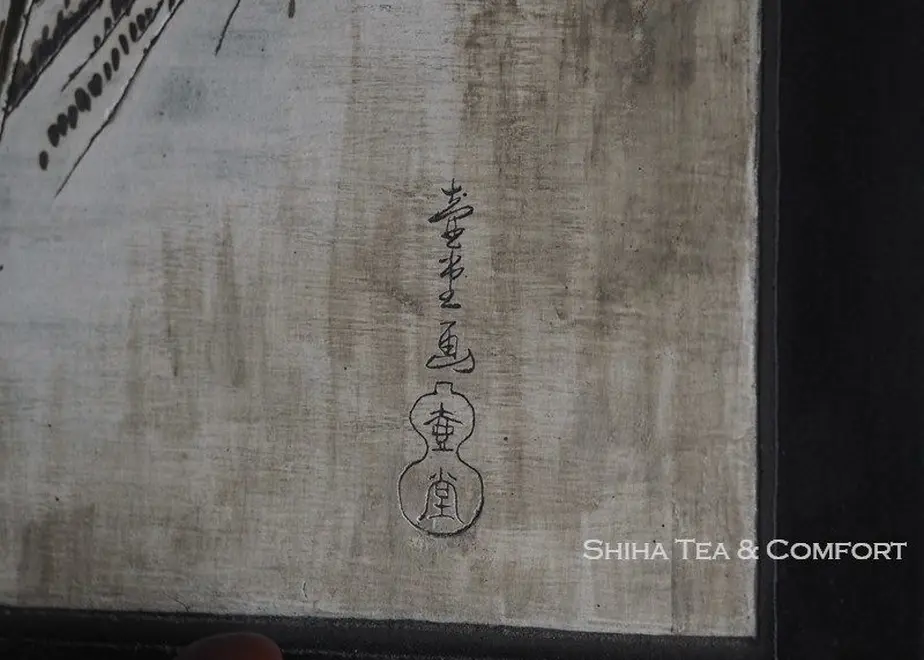 壷堂画
壷堂
SHIHA TEA & COMFORT